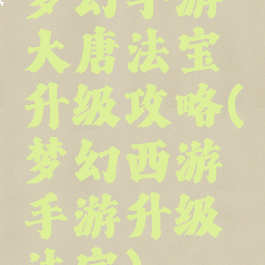 梦幻手游
大唐法宝
升级攻略(
梦幻西游
手游升级
法宝)